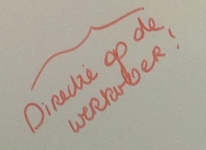 Directie op de
werkvloer!